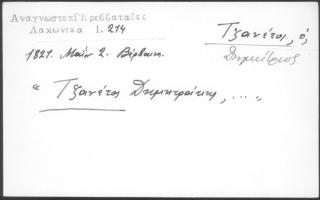 ΑναγνωστοπΓΚρεββαταδες
Λακωνικα 1. 214
Τζανέτος, ὁ
Δημήτριος
1821. Μαΐου 2. Βέρβαινα.
" Τζανέτος Δημητράκης, ... "